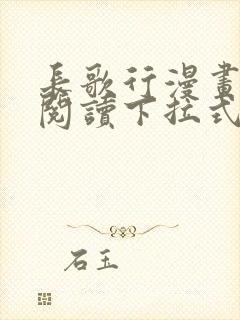 長歌行漫畫
閱讀下拉式
石玉